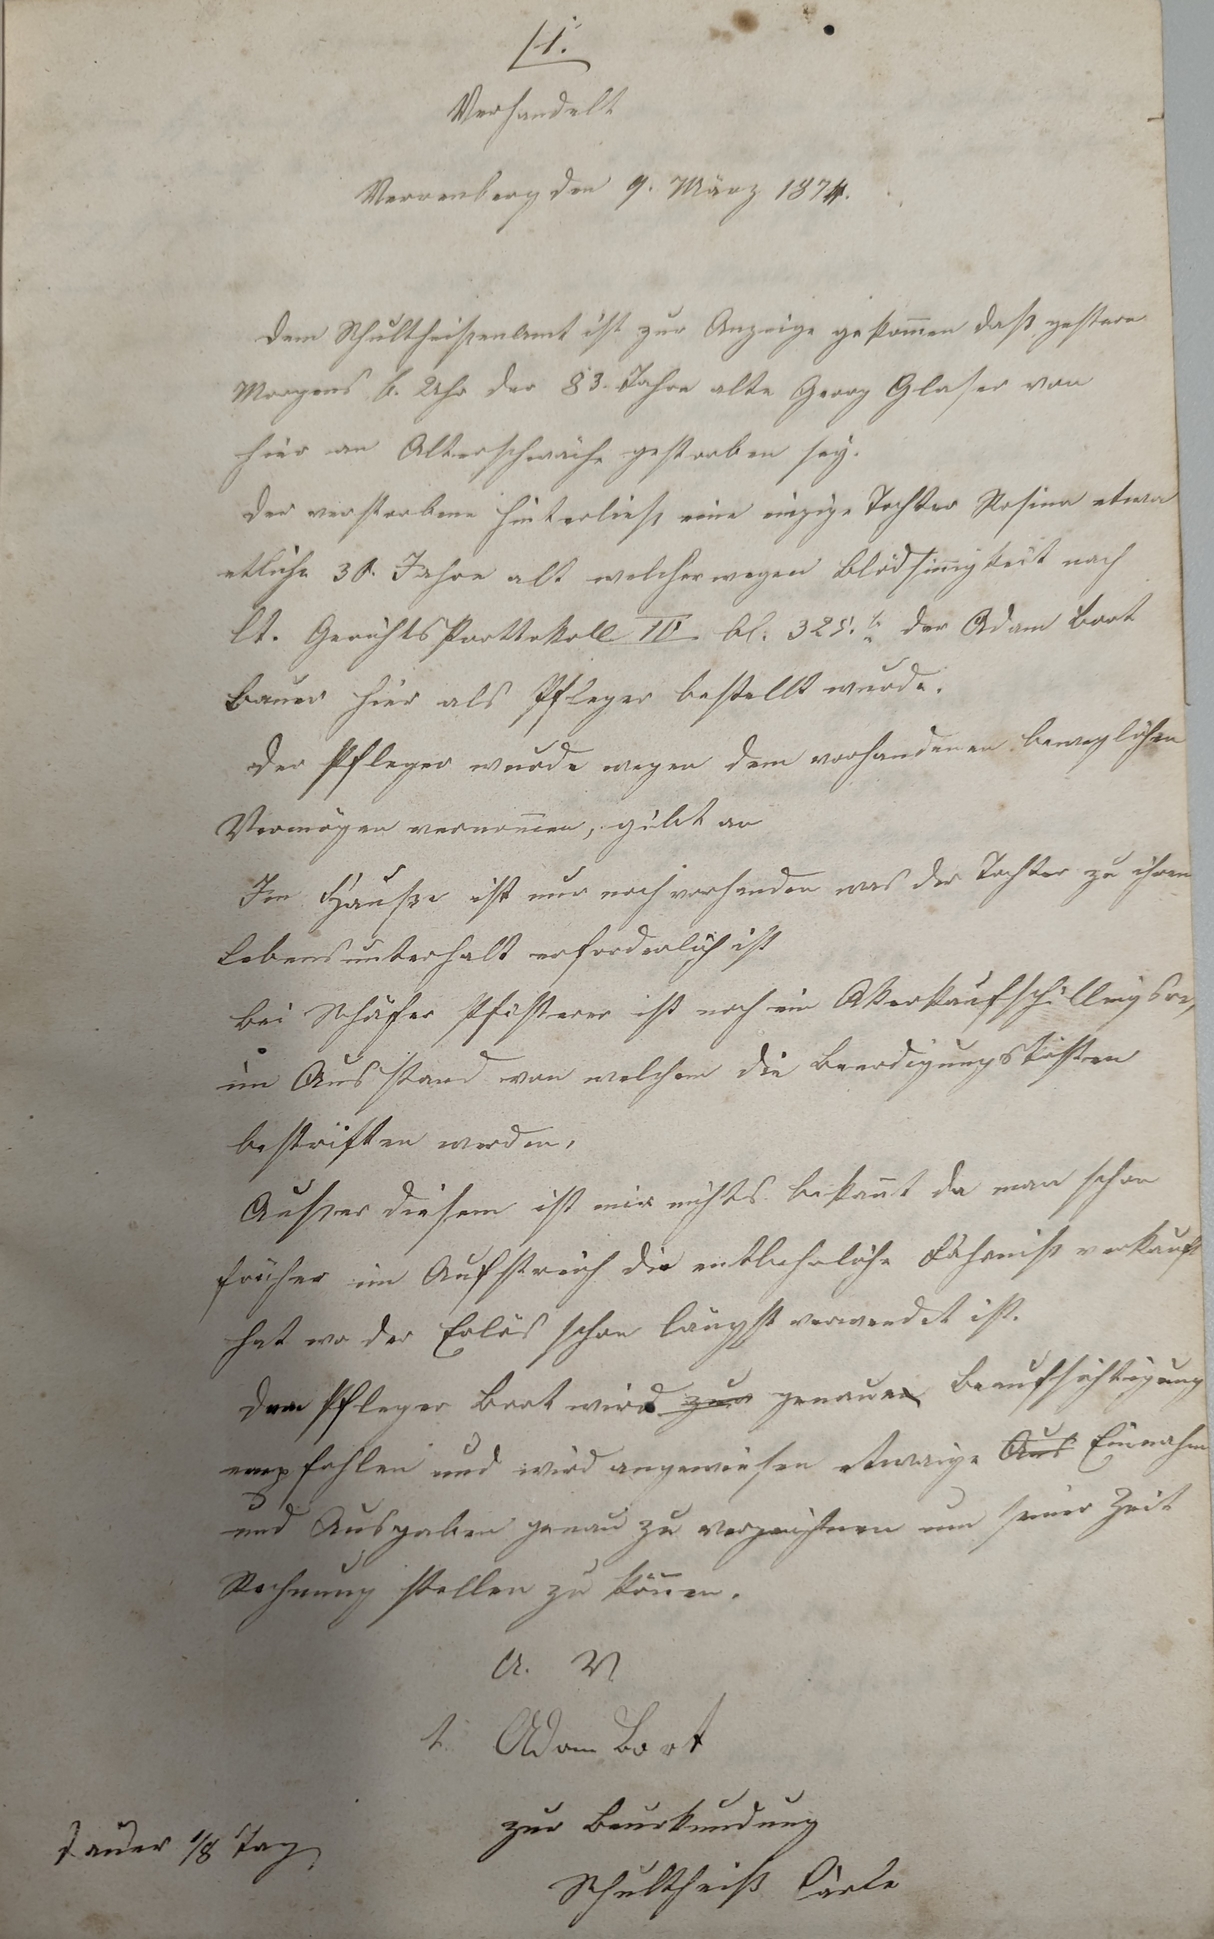 /1.
Verhandelt
Verrenberg den 9. März 1874.
Dem Schultheißenamt ist zur Anzeige gekommen daß gestern
Morgens 6. Uhr der 83. Jahre alte Georg Glaser von
hier an Altersschwäche gestorben sey.
Der verstorbene hinterließ eine einzige Tochter Rosina etwa
etliche 30. Jahre alt welcher wegen Blödsinnigkeit nach
lt. Gerichts Prottokoll IV bl. 325. der Adam Bort
Bauer hier als Pfleger bestellt wurde.
Der Pfleger wurde wegen dem vorhandenen beweglichen
Vermögen vernommen, gibt an
Im Hauße ist nur noch vorhanden was der Tochter zu ihrem
Lebensunterhalt erforderlich ist
bei Schäfer Pfisterer ist noch ein Akerkaufschillingsre,
im Ausstand von welchem die Beerdigungskosten
bestritten werden,
Außer diesem ist mir nichts bekannt da man schon
früher im Aufstreich die entbehrliche Fahrniß verkauft
hat wo der Erlös schon längst verwendet ist.
Dem Pfleger Bort wird zur genauen Beaufsichtigung
empfohlen und wird angewiesen etwaige Aus Einnahm
und Ausgaben genau zu verzeichnen um seiner Zeit
Rechnung stellen zu können.
A. V
t. Adam Bort
zur Beurkundung
Dauer 1/8 Tag
Schultheiß